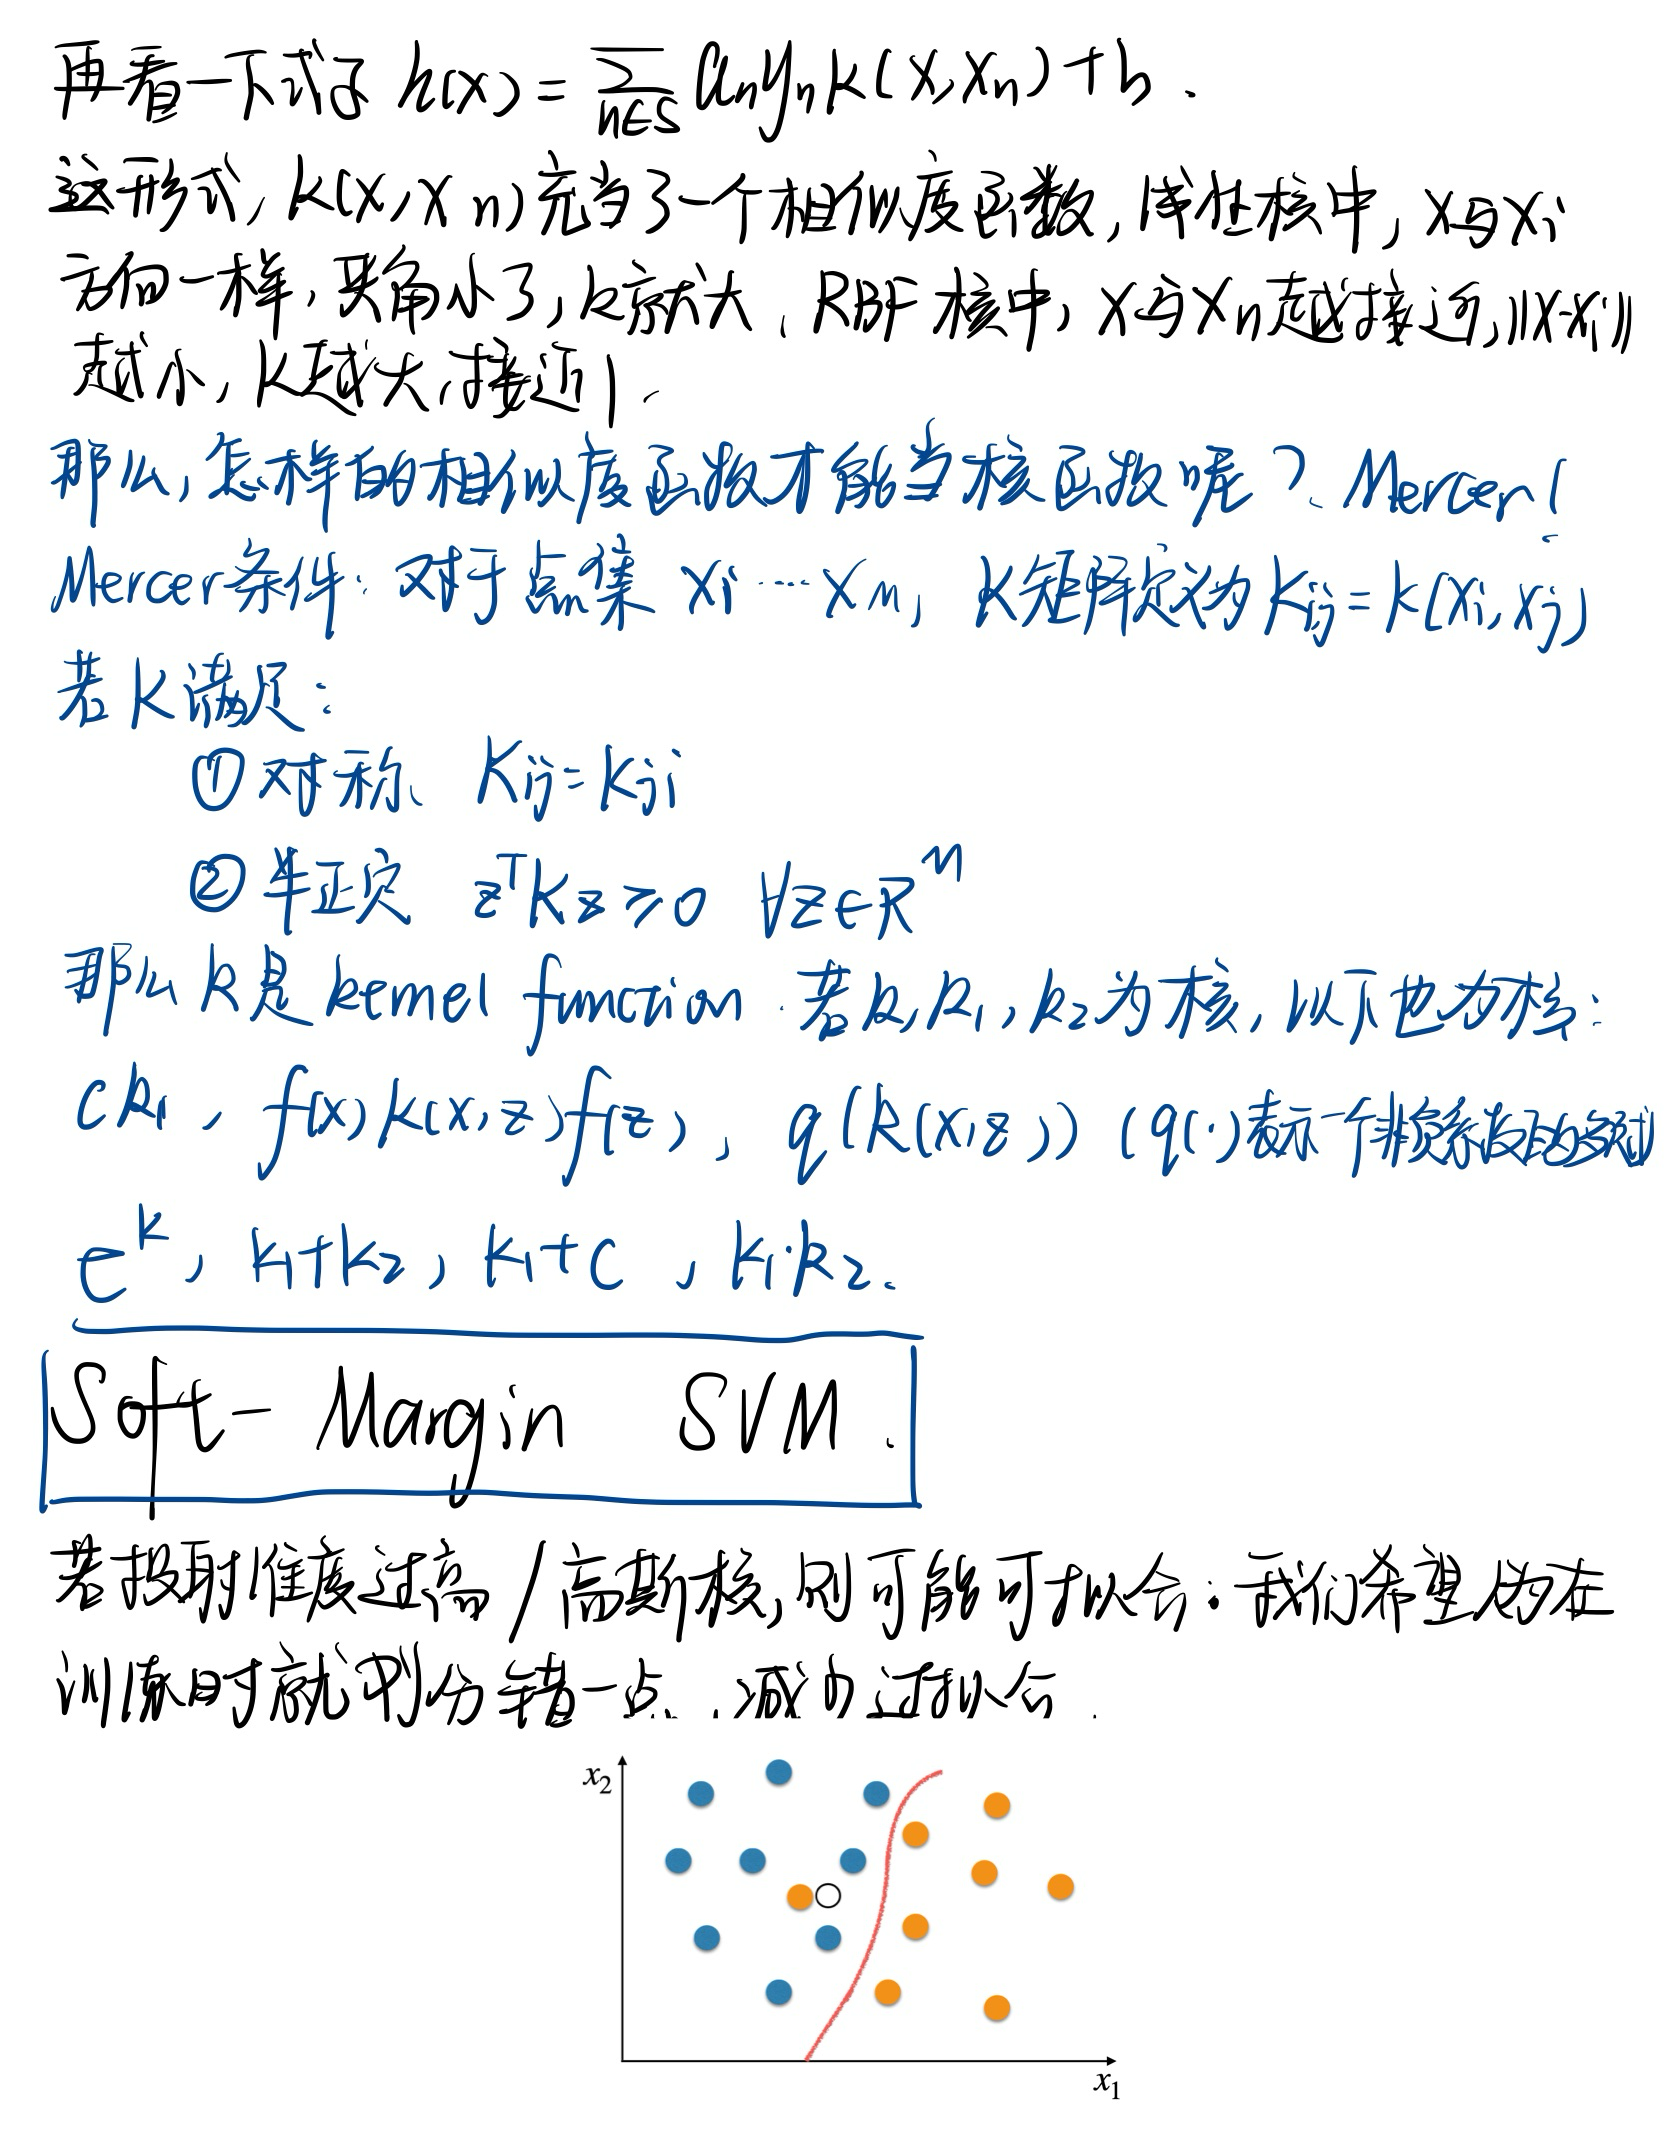 再看一下式子 h(x) = ∑_{n∈S} a_n y_n k(x, x_n) + b .
这形式, k(x, x_n) 充当了一个相似度函数, 线性核中, x与x_i
方向一样, 夹角小了, k就大. RBF核中, x与x_n越接近, ||x-x_i||
越小, k越大, 接近1.
那么, 怎样的相似度函数才能当核函数呢? Mercer!
Mercer条件: 对于点集 x_i ... x_m, K矩阵定义为 K_{ij} = k(x_i, x_j)
若K满足:
① 对称、 K_{ij} = K_{ji}
② 半正定 z^T K z ≥ 0 ∀z∈R^M
那么 k是 kernel function. 若k, k_1, k_2为核, 以下也为核:
ck_1, f(x)k(x,z)f(z), q(k(x,z)) (q(·)表示一个非负系数的多项式
e^k, k_1+k_2, k_1+c, k_1·k_2.
Soft-Margin SVM.
若投射维度过高/高斯核, 则可能可拟合: 我们希望人为在
训练时就划分错一点, 减少过拟合.
x_2
x_1